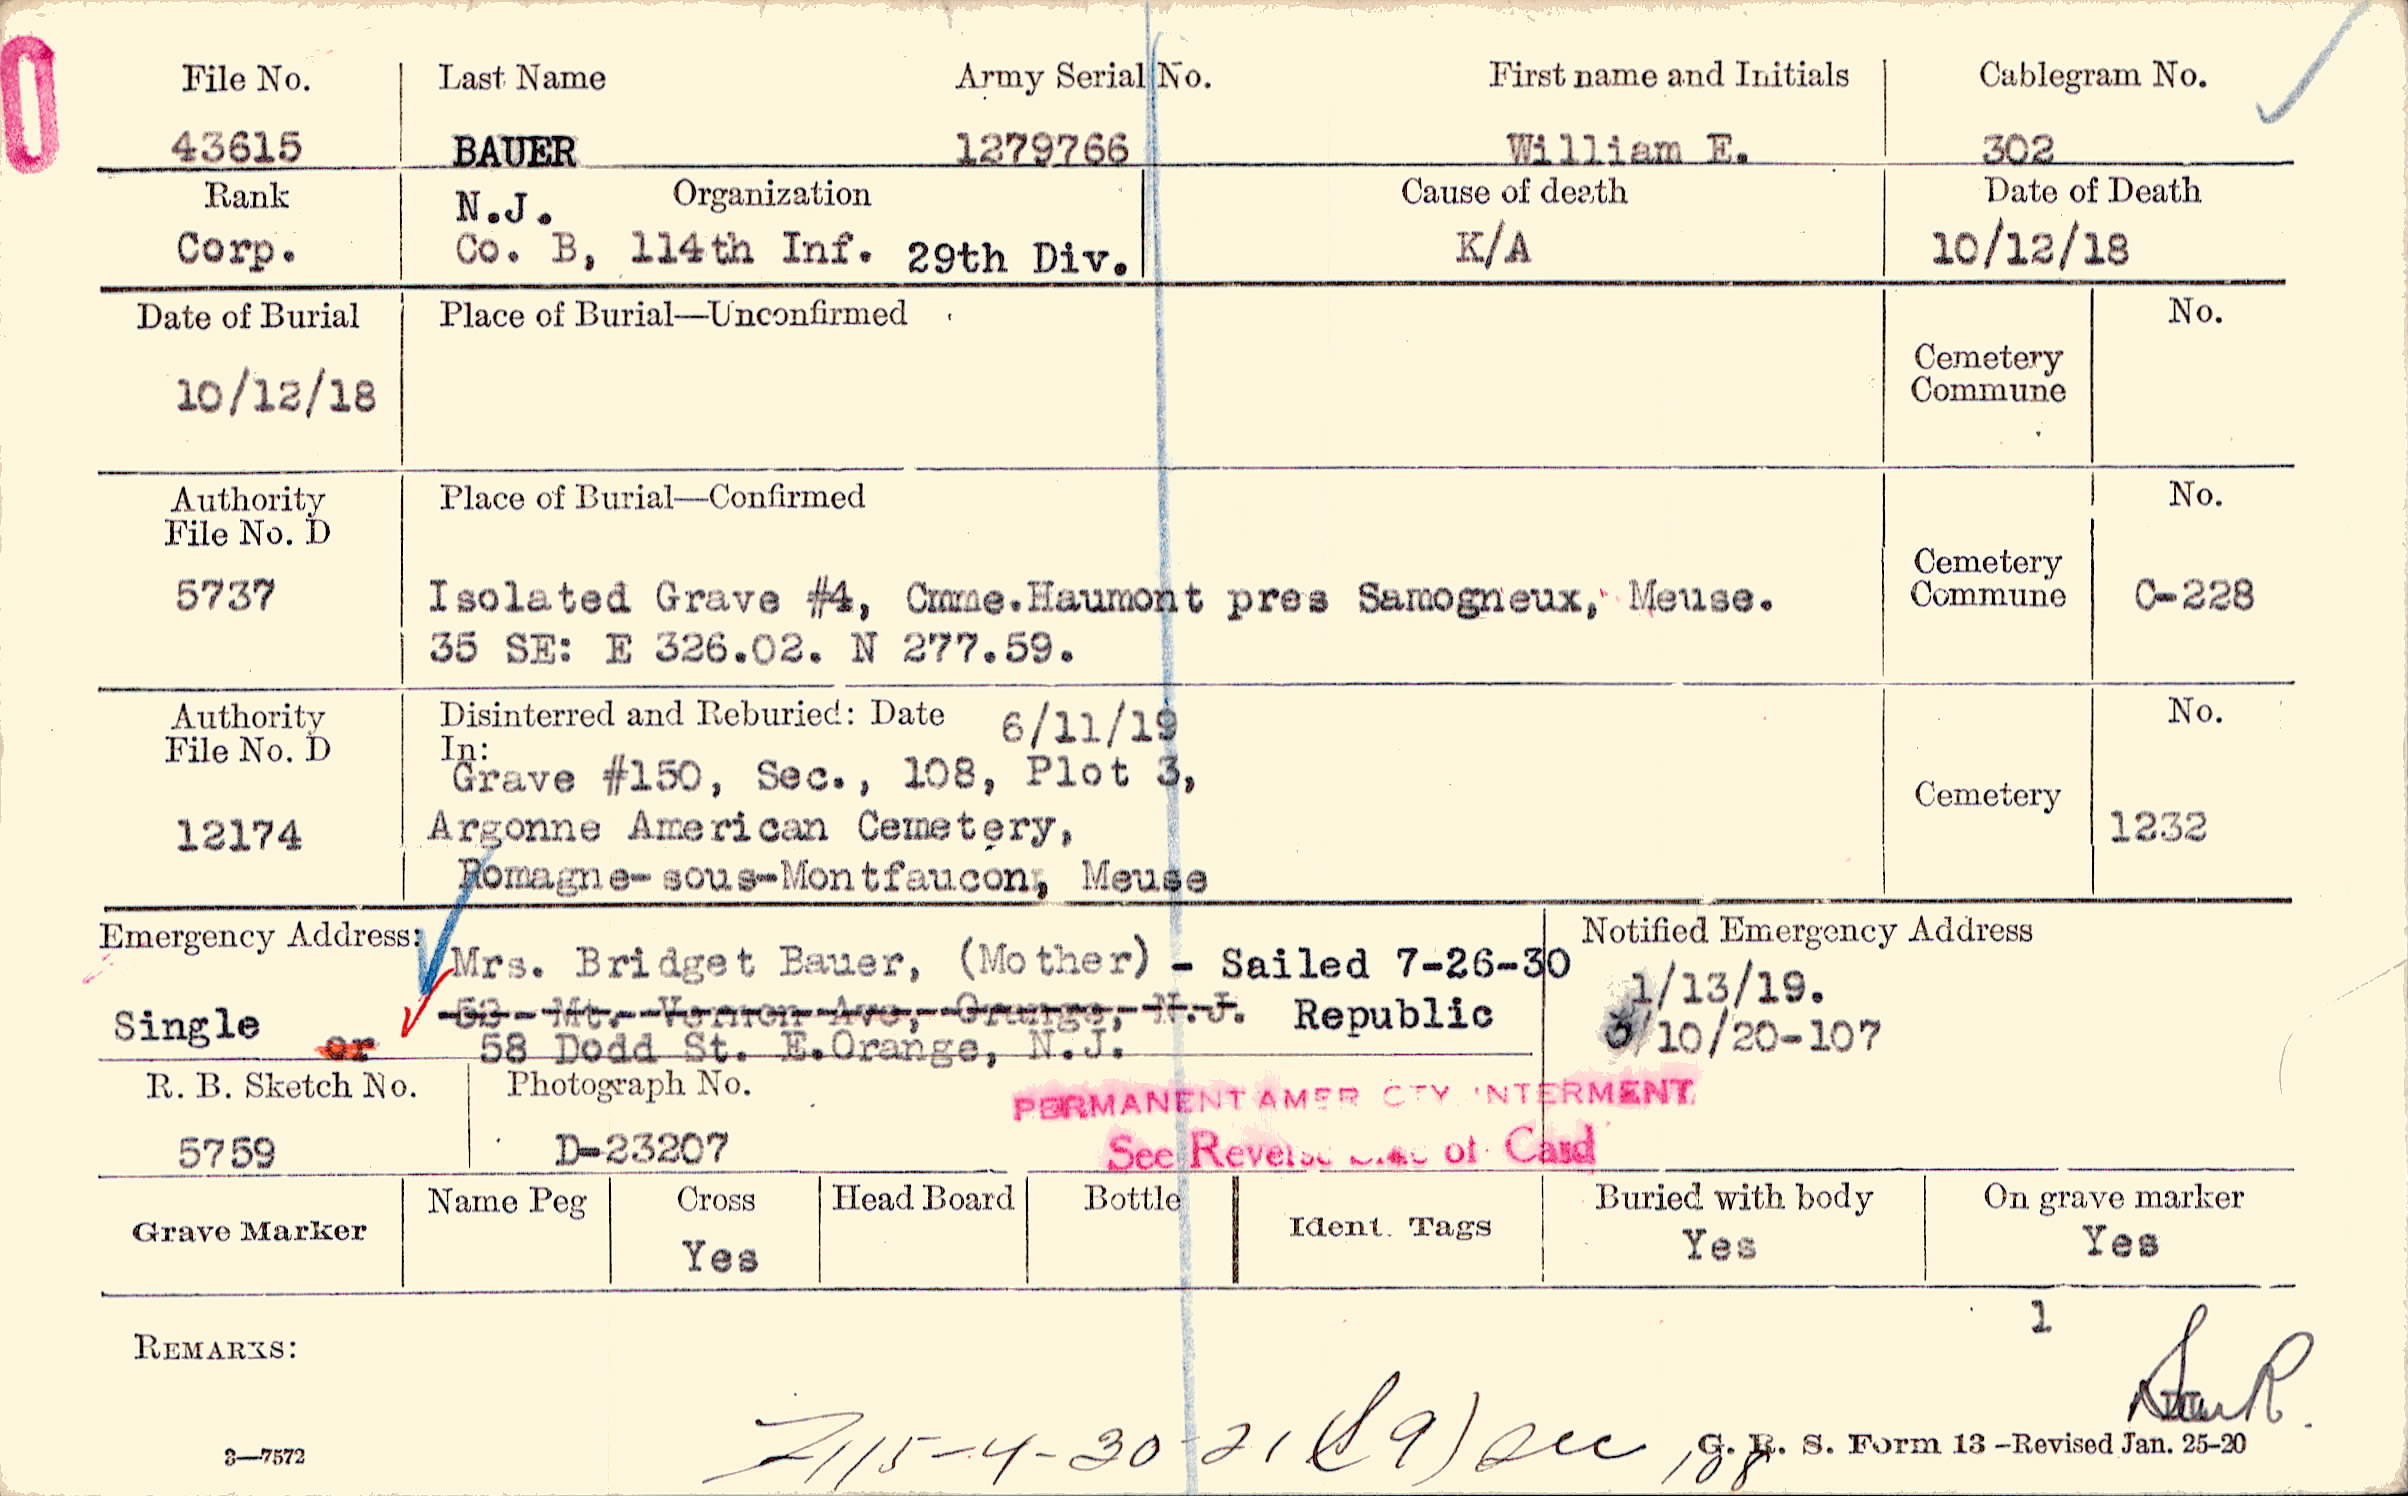 File No. Last Name Army Serial No. First name and Initials Cablegram No.
43615 BAUER 1279766 William E. 302
Rank Organization Cause of death Date of Death
N.J.
Corp. Co. B, 114th Inf. 29th Div. K/A 10/12/18
Date of Burial Place of Burial—Unconfirmed No.
Cemetery
Commune
10/12/18
Authority Place of Burial—Confirmed No.
File No. D
Cemetery
Commune
5737 Isolated Grave #4, Cmme.Haumont pres Samogneux, Meuse. C-228
35 SE: E 326.02. N 277.59.
Authority Disinterred and Reburied: Date 6/11/19 No.
File No. D In:
Grave #150, Sec., 108, Plot 3,
Cemetery
12174 Argonne American Cemetery, 1232
Romagne-sous-Montfaucon, Meuse
Emergency Address: Mrs. Bridget Bauer, (Mother) - Sailed 7-26-30 Notified Emergency Address
1/13/19.
Single Mt. Vernon Ave, Orange, N.J. Republic
3/10/20-107
or 58 Dodd St. E.Orange, N.J.
R. B. Sketch No. Photograph No.
PERMANENT AMER CTY INTERMENT
5759 D-23207 See Reverse Side of Card
Grave Marker Name Peg Cross Head Board Bottle Ident. Tags Buried with body On grave marker
Yes Yes Yes
1
REMARKS:
115-4-30-21 (S9) Sec 108
3—7572 G. R. S. Form 13-Revised Jan. 25-20